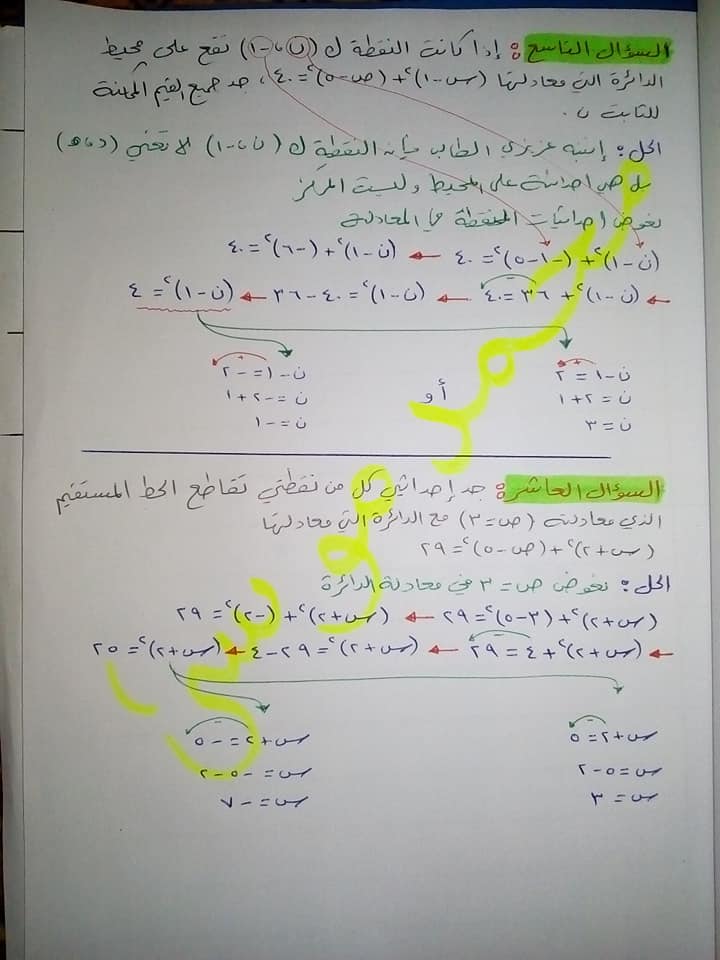 السؤال التاسع : إذا كانت النقطة ل (ن ، -١) تقع على محيط
الدائرة التي معادلتها (س-١)² + (ص-٥)² = ٤٠ ، جد جميع القيم الممكنة
للثابت ن .
الحل : إنتبه عزيزي الطالب فإن النقطة ل (ن ، -١) لا تعني (د ، هـ)
بل هي احداثية على المحيط وليست المركز
نعوض احداثيات النقطة في المعادلة
(ن-١)² + (-١-٥)² = ٤٠ ← (ن-١)² + (-٦)² = ٤٠
← (ن-١)² + ٣٦ = ٤٠ ← (ن-١)² = ٤٠ - ٣٦ ← (ن-١)² = ٤
ن-١ = ٢
ن = ٢+١
ن = ٣
أو
ن-١ = -٢
ن = -٢+١
ن = -١
السؤال العاشر : جد إحداثيي كل من نقطتي تقاطع الخط المستقيم
الذي معادلته (ص=٣) مع الدائرة التي معادلتها
(س+٢)² + (ص-٥)² = ٢٩
الحل : نعوض ص=٣ في معادلة الدائرة
(س+٢)² + (٣-٥)² = ٢٩ ← (س+٢)² + (-٢)² = ٢٩
← (س+٢)² + ٤ = ٢٩ ← (س+٢)² = ٢٩-٤ ← (س+٢)² = ٢٥
س+٢ = ٥
س = ٥-٢
س = ٣
س+٢ = -٥
س = -٥-٢
س = -٧
محمد موسى